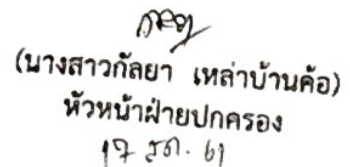 (นางสาวกัลยา เหล่าบ้านค้อ)
หัวหน้าฝ่ายปกครอง
17 ธค. 61